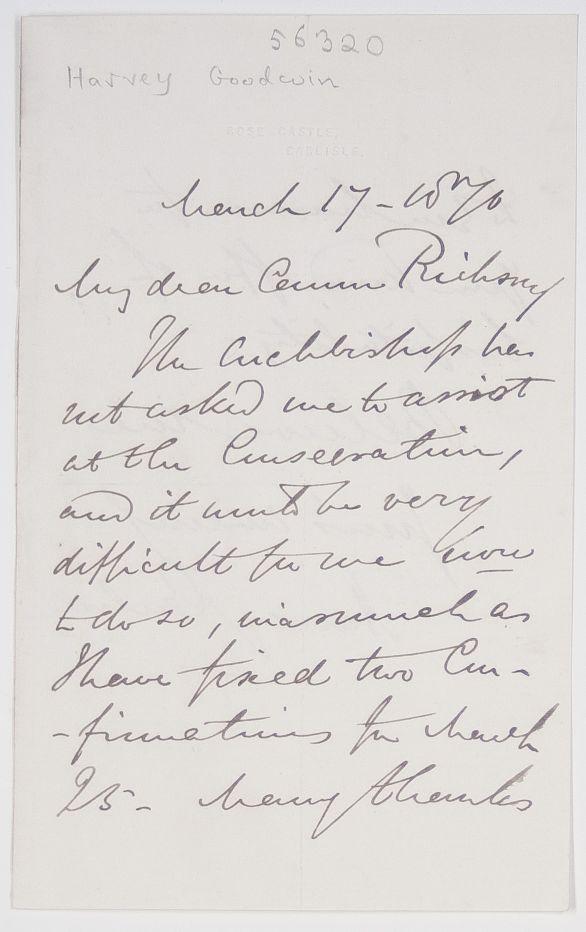 56320
Harvey Goodwin
ROSE CASTLE,
CARLISLE.
March 17 - 1870
My dear Canon
The Archbishop has
not asked me to assist
at the Consecration,
and it would be very
difficult for me now
to do so, inasmuch as
I have fixed two Con-
-firmations for March
25 - Many thanks